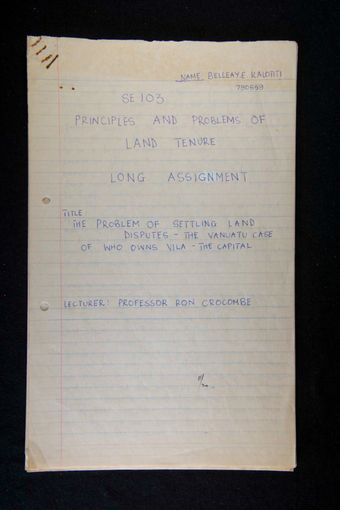 NAME. BELLEAY.E. KALOTITI
790669
SE 103
PRINCIPLES AND PROBLEMS OF
LAND TENURE
LONG ASSIGNMENT
TITLE
THE PROBLEM OF SETTLING LAND
DISPUTES - THE VANUATU CASE
OF WHO OWNS VILA - THE CAPITAL
LECTURER: PROFESSOR RON CROCOMBE